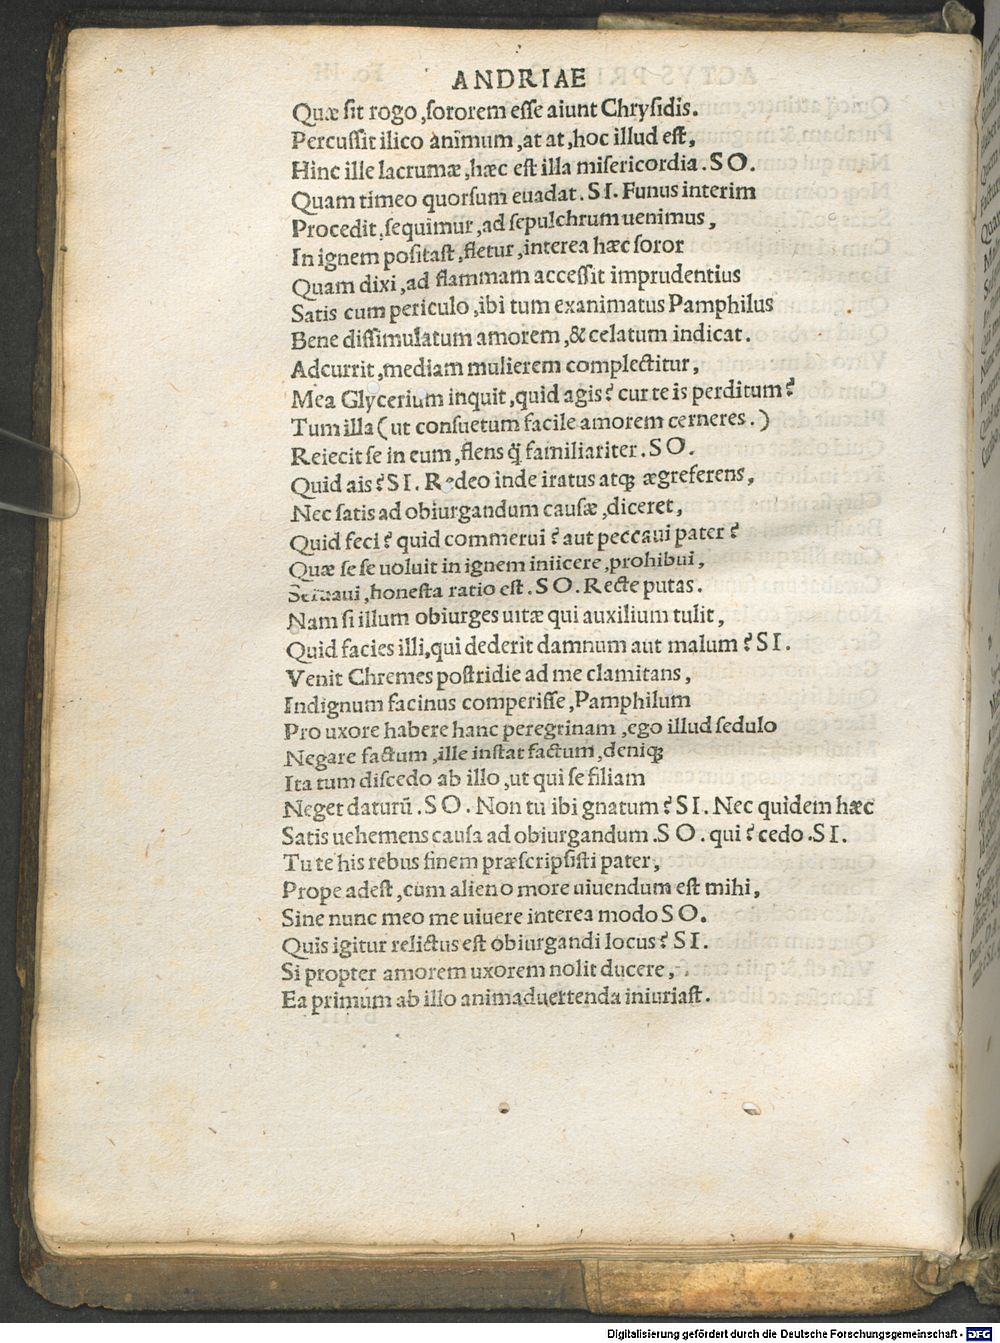 ANDRIAE
Quæ sit rogo, sororem esse aiunt Chrysidis.
Percussit ilico animum, at at, hoc illud est,
Hinc ille lacrumæ, hæc est illa misericordia. SO.
Quam timeo quorsum euadat. SI. Funus interim
Procedit, sequimur, ad sepulchrum uenimus,
In ignem positast, fletur, interea hæc soror
Quam dixi, ad flammam accessit imprudentius
Satis cum periculo, ibi tum exanimatus Pamphilus
Bene dissimulatum amorem, & celatum indicat.
Adcurrit, mediam mulierem complectitur,
Mea Glycerium inquit, quid agis? cur te is perditum?
Tum illa (ut consuetum facile amorem cerneres.)
Reiecit se in eum, flens q̃ familiariter. SO.
Quid ais? SI. Redeo inde iratus atq; ægre ferens,
Nec satis ad obiurgandum causæ, diceret,
Quid feci? quid commerui? aut peccaui pater?
Quæ sese uoluit in ignem iniicere, prohibui,
Seruaui, honesta ratio est. SO. Recte putas.
Nam si illum obiurges uitæ qui auxilium tulit,
Quid facies illi, qui dederit damnum aut malum? SI.
Venit Chremes postridie ad me clamitans,
Indignum facinus comperisse, Pamphilum
Pro uxore habere hanc peregrinam, ego illud sedulo
Negare factum, ille instat factum, deniq;
Ita tum discedo ab illo, ut qui se filiam
Neget daturũ. SO. Non tu ibi gnatum? SI. Nec quidem hæc
Satis uehemens causa ad obiurgandum. SO. qui? cedo. SI.
Tu te his rebus finem præscripsisti pater,
Prope adest, cum alieno more uiuendum est mihi,
Sine nunc meo me uiuere interea modo SO.
Quis igitur relictus est obiurgandi locus? SI.
Si propter amorem uxorem nolit ducere,
Ea primum ab illo animaduertenda iniuriast.
Digitalisierung gefördert durch die Deutsche Forschungsgemeinschaft - DFG